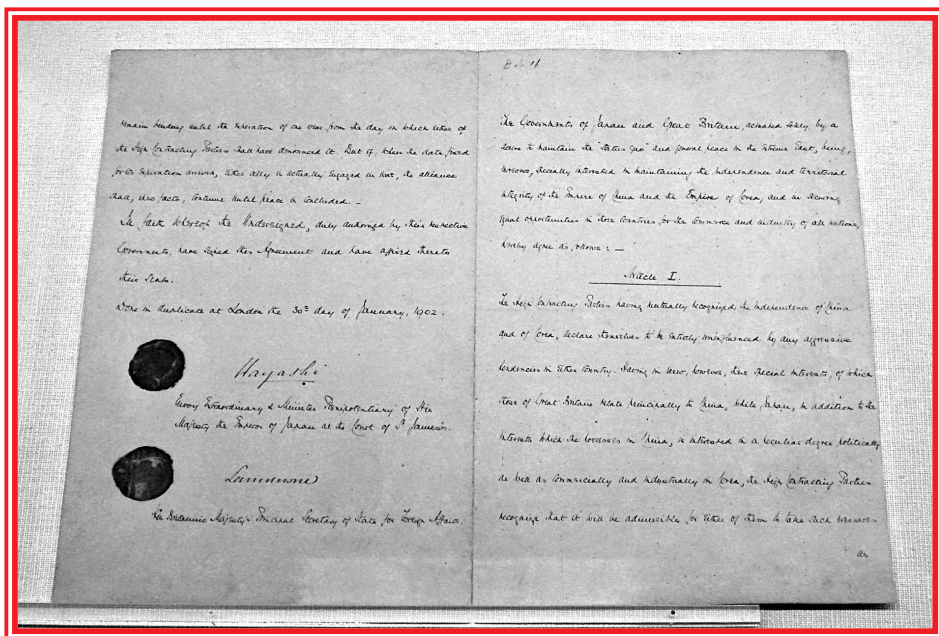 remain binding until the expiration of one year from the day on which either of
the High Contracting Parties shall have denounced it. But if, when the date fixed
for its expiration arrives, either ally is actually engaged in war, the alliance
shall, ipso facto, continue until peace is concluded. –
In faith whereof the Undersigned, duly authorized by their respective
Governments, have signed this Agreement and have affixed thereto
their Seals.
Done in duplicate at London the 30th day of January, 1902.
Hayashi
Envoy Extraordinary & Minister Plenipotentiary of His
Majesty the Emperor of Japan at the Court of St. James's.
Lansdowne
His Britannic Majesty's Principal Secretary of State for Foreign Affairs.
The Governments of Japan and Great Britain, actuated solely by a
desire to maintain the "status quo" and general peace in the Extreme East, being,
moreover, specially interested in maintaining the independence and territorial
integrity of the Empire of China and the Empire of Corea, and in securing
equal opportunities in those countries for the commerce and industry of all nations,
hereby agree as follows: –
Article I.
The High Contracting Parties having mutually recognized the independence of China
and of Corea, declare themselves to be entirely uninfluenced by any aggressive
tendencies in either country. Having in view, however, their special interests, of which
those of Great Britain relate principally to China, while Japan, in addition to the
interests which she possesses in China, is interested in a peculiar degree politically
as well as commercially and industrially in Corea, the High Contracting Parties
recognize that it will be admissible for either of them to take such measures
as